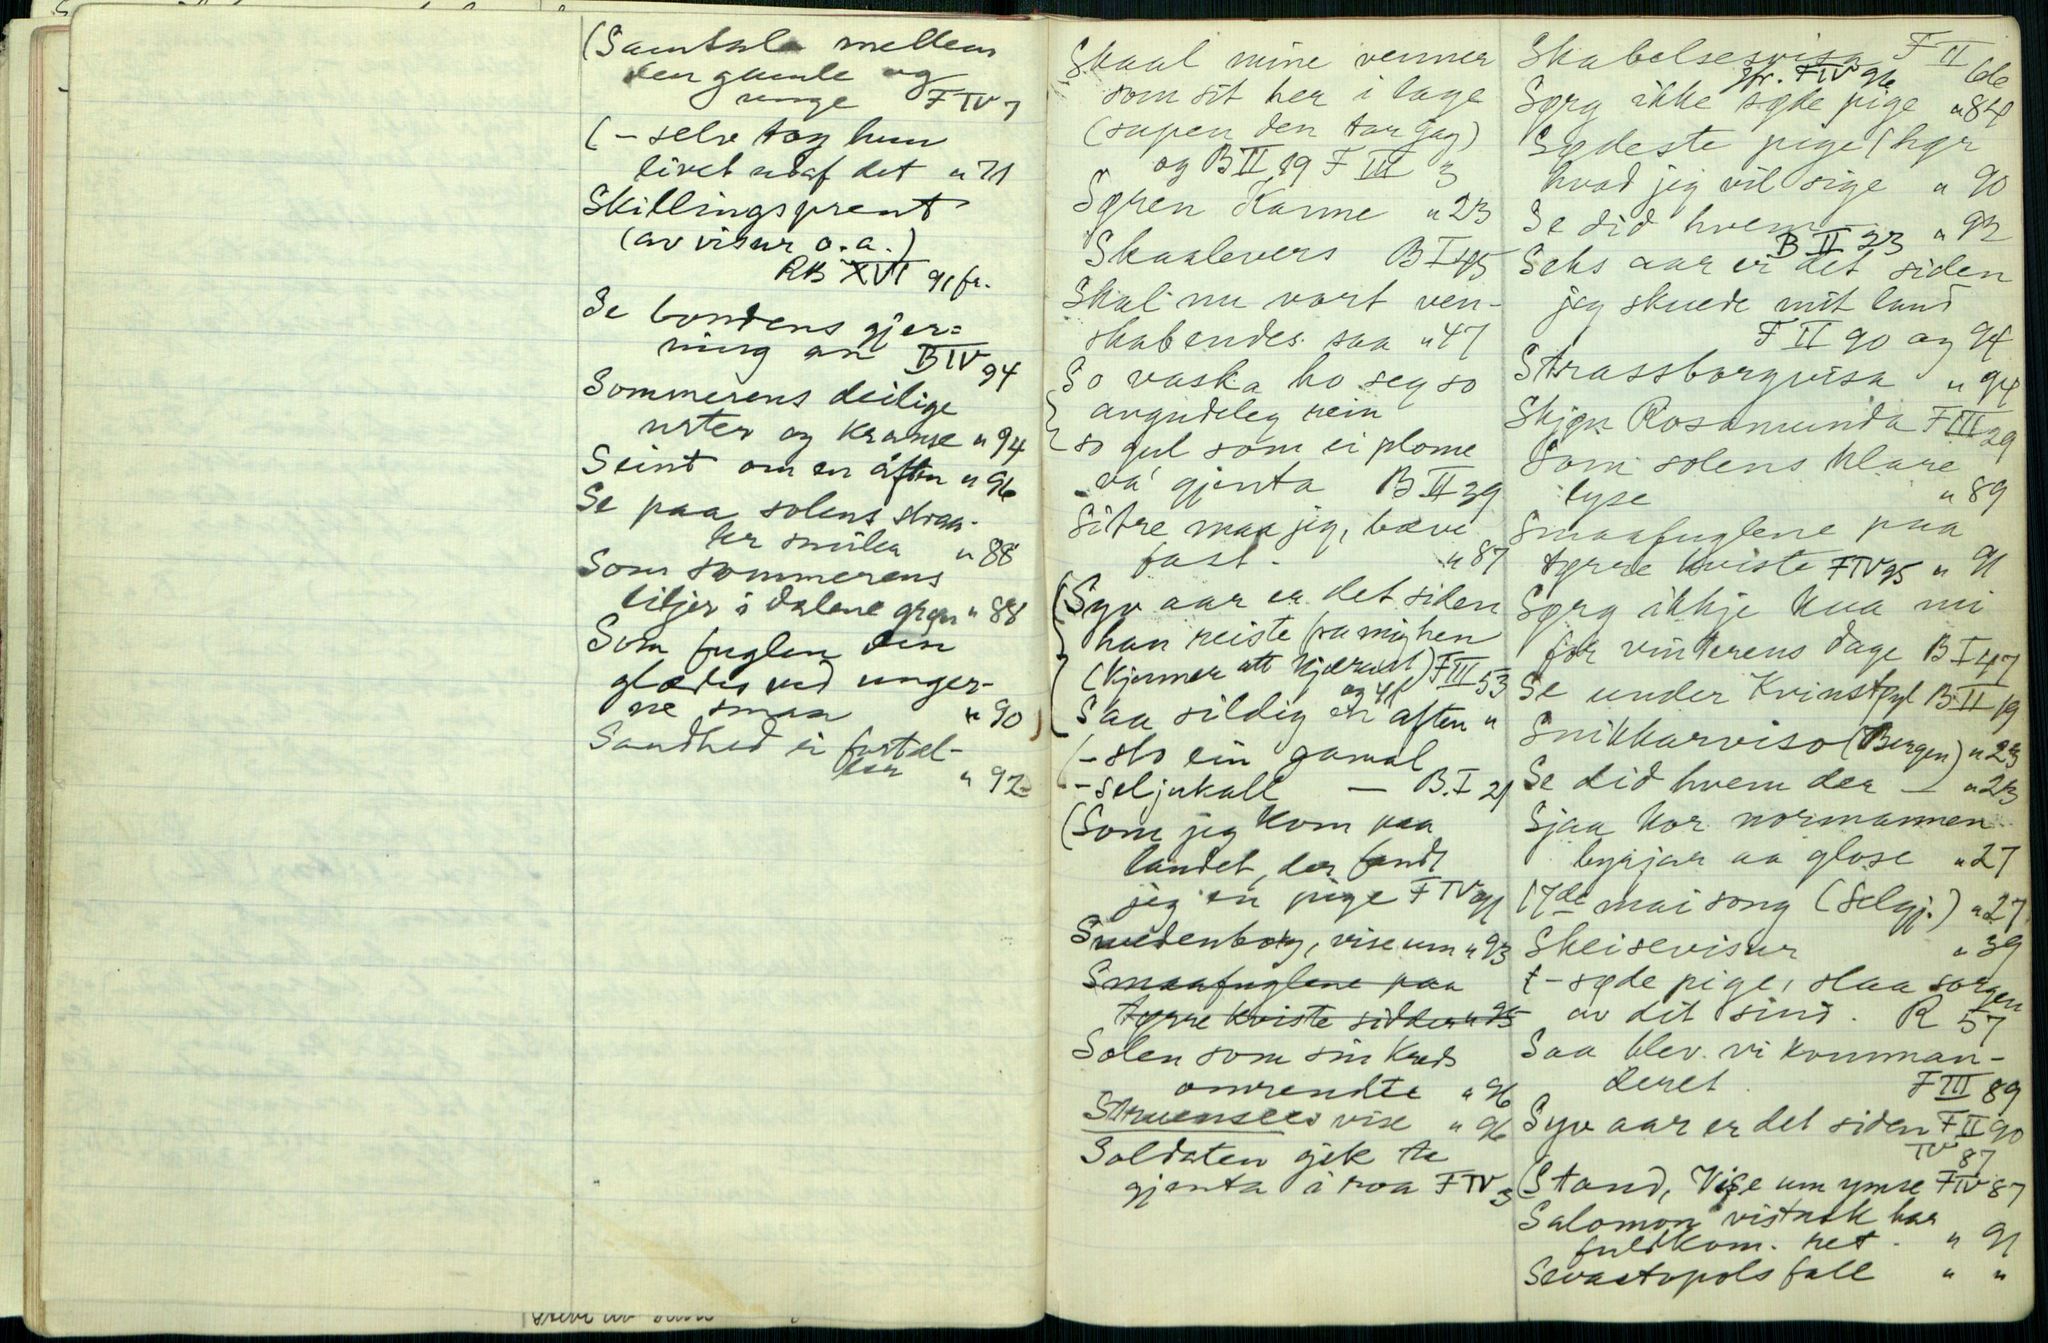 (Samtale mellem
den gamle og
unge F IV 7
(- selv tog hun
livet utaf det " 71
Skillingsprent
(av visur o.a.)
RB XVI 91 fr.
Se bondens gjer=
ning an B IV 94
Sommerens deilige
urter og kranse " 94
Seint om en áften " 96
Se paa solens straa-
ler smiler " 88
Som sommerens
liljer i dalene grøn " 88
Som fuglen den
glædes ved unger-
ne smaa " 90
Sandhed ei fortæl-
ler " 92
Skaal mine venner
som sit her i lage
(supen den tar jag)
og B II 19 F III 3
Søren Kanne " 23
Skaalevers B I 45
Skal nu vort ven-
skab endes saa " 47
So vaska ho seg so
avgudeleg rein
so gul som ei plome
va' gjenta B II 39
Sitre maa jig, bæve
fast. " 87
(Syv aar er det siden
han reiste fra mig hen
(Kjenner att kjærast) F III 53
og 41
Saa sildig en aften "
- sto ein gamal
- seljukall — B. I 21
(Som jeg kom paa
landet, der fandt
jeg en pige F IV 91
Swedenborg, vise um " 93
Smaafuglene paa
tørre kviste sidder " 95
Solen som sin Kreds
omrendte " 96
Struensees vise " 96
Soldaten gjek te
gjenta i roa F IV 3
Skabelsesvisa F II 66
jfr. F IV 96
Sørg ikke søde pige " 84
Sødeste pige (hør
hvad jeg vil sige " 90
Se did hvem — " 92
B II 23
Seks aar er det siden
jeg skuede mit land
F II 90 og 94
Strassborgvisa " 94
Skjøn Rosamunda F III 29
Som solens klare
lyse " 89
Smaafuglene paa
tyrre kviste F IV 95 " 91
Sørg ikkje Kua mi
for vinterens dage B I 47
Se under Kvinstøyl B II 19
Snikkarviso (Bergen) " 23
Se did hvem der — " 23
Sjaa kor normannen
byrjar aa glose " 27
17de mai song (Selgj.) " 27
Skeisevisur " 39
- søde pige, slaa sorgen
av dit sind. R 57
Saa blev vi komman-
deret F III 89
Syv aar er det siden F II 90
IV 87
(Stand, Vise um ymse F IV 87
Salomon vistnok har
fuldkom. ret. " 91
Sevastopols fall " "